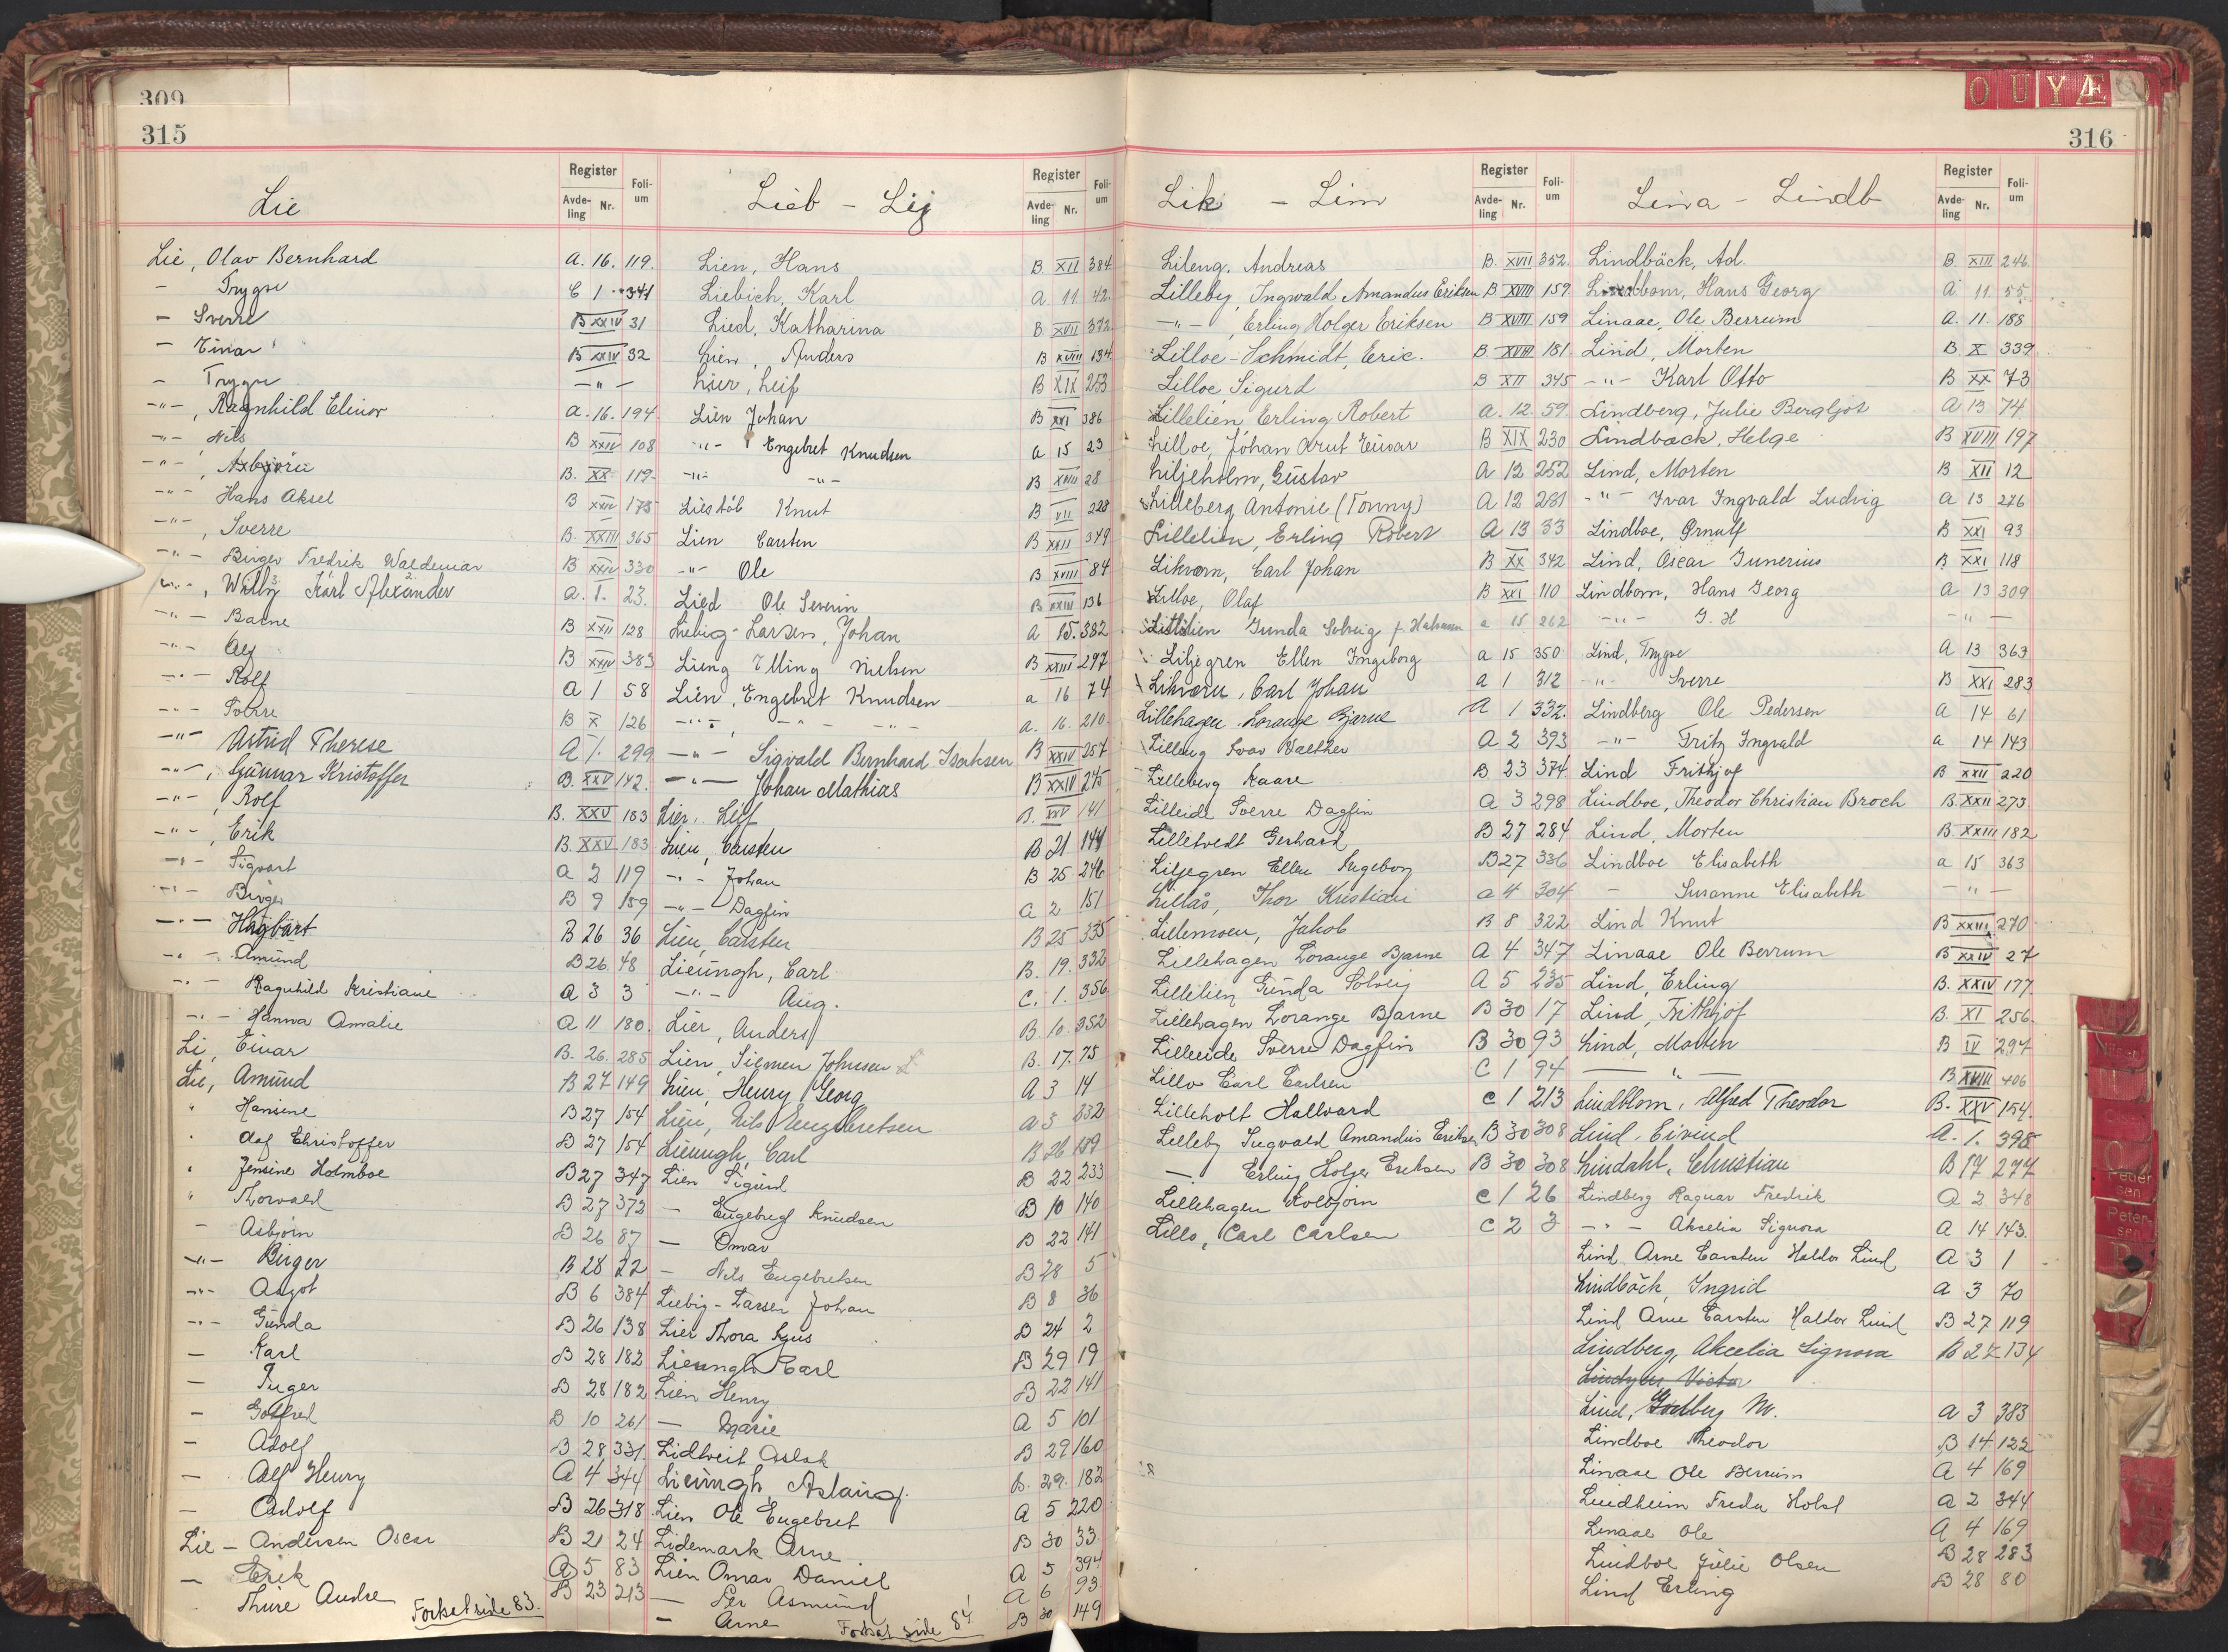 309
315
Register
Avde-ling Nr. Foli-um
Lie
Lie, Olav Bernhard A. 16. 119.
- Trygve C 1 341
- Sverre B XXIV 31
- Einar B XXIV 32
- Trygve -"-
-"-, Ragnhild Elinor A. 16. 194.
-"- Nils B XXIV 108
-"-, Asbjørn B. XX 119.
-"- Hans Aksel B XXIV 175
-"-, Sverre B. XXIII 365
-"- Birger Fredrik Waldemar B XXIV 330
-"-, Willy Karl Alexander A. 1. 23.
-"- Barne B XXII 128
-"- Alf B XXIV 383
-"- Rolf A 1 58
-"- Sverre B X 126
-"- Astrid Therese A 1. 299
-"-, Gunnar Kristoffer B. XXV 142.
-"-, Rolf B. XXV 183
-"-, Erik B. XXV 183
-"- Sigvart A 2 119
-"- Birger B 9 159
-"- Hagbart B 26 36
-"- Amund B 26. 48
-"- Ragnhild Kristiane A 3 3
-"- Hanna Amalie A 11 180.
Li, Einar B. 26. 285
Lie, Amund B 27 149
" Hansine B 27 154
" Olaf Christoffer B 27 154
" Jensine Holmboe B 27 347
" Thorvald B 27 372
- Asbjørn B 26 87
-"- Birger B 28 22
-"- Aagot B 6 384
-"- Gunda B 26 138
- Karl B 28 182
- Inger B 28 182
- Gotfred B 10 261
- Adolf B 28 331
- Alf Henry A 4 344
- Adolf B 26 318
Lie - Andersen Oscar B 21 24
- Erik A 5 83
Thure Andre B 23 213
Forts. side 83.
Register
Avde-ling Nr. Foli-um
Lieb - Lij
Lien, Hans B XII 384
Liebich, Karl A 11 42
Lied, Katharina B XVII 372
Lien, Anders B XVIII 134
Lier, Leif B XIX 253
Lien Johan B XXI 386
-"- Engebret Knudsen A 15 23
-"- -"- B XVIII 28
Liestøl Knut B VII 228
Lien Carsten B XXII 349
-"- Ole B XVIII 84
Lied Ole Severin B XXIII 136
Liebig-Larsen, Johan A 15. 382
Lieng Elling Nielsen B XXIII 297
Lien, Engebret Knudsen a 16 74
-"- -"- -"- a. 16. 210.
-"- Sigvald Bernhard Isaksen B XXIV 257
-"- Johan Mathias B XXIV 275
Lier, Leif B. XXV 141
Lien, Carsten B 21 144
-"- Johan B 25 246
-"- Dagfin A 2 151
Lien, Carsten B 25 335
Lieungh, Carl B. 19. 332
-"- Aug. C. 1. 356
Lier, Anders B. 10. 352
Lien, Simen Johnsen B. 17. 75
Lien, Henry Georg A 3 14
Lien, Nils Engebretsen A 3 232
Lieungh, Carl B 26 189
Lien Sigurd B 22 233
- Engebregt Knudsen B 10 140
- Omar B 22 141
- Nils Engebretsen B 28 5
Liebig-Larsen Johan B 8 36
Lier Thora Agus B 24 2
Lieungh Carl B 29 19
Lien Henry B 22 141
- Marie A 5 101
Lidtveit Aslak B 29 160
Lieungh, Aslaug. B. 29. 182
Lien Ole Engebret A 5 220
Lidemark Arne B 30 33
Lien Omar Daniel A 5 394
- Per Asmund A 6 93
- Arne B 30 149
Fortsat side 84
O U Y Æ
316
Register
Avde-ling Nr. Foli-um
Lik - Lim
Lileng, Andreas B. XVII 352.
Lilleby, Ingwald Amandus Eriksen B XVIII 159.
-"-, Erling Holger Eriksen B XVIII 159
Lilloe-Schmidt, Eric. B XVIII 181.
Lilloe, Sigurd B XII 345
Lillelien, Erling Robert A. 12. 59.
Lilloe, Johan Knut Einar B XIX 230
Liljeholm, Gustav A 12 252
Lilleberg Antonie (Tonny) A 12 281
Lillelien, Erling Robert A 13 33
Likvorn, Carl Johan B XX 342
Lilloe, Olaf B XXI 110
Lillelien Gunda Solveig f. Halvorsen a 15 262
Liljegren Ellen Ingeborg a 15 350
Likvorn, Carl Johan A 1 312
Lillehagen Lorange Bjarne A 1 332.
Lilleng Svar Walther A 2 393
Lilleberg Kaare B 23 374
Lilleide Sverre Dagfin A 3 298
Lilletvedt Gerhard B 27 284
Liljegren Ellen Ingeborg B 27 336
Lillås, Thor Kristian a 4 304
Lillemoen, Jakob B 8 322
Lillehagen Lorange Bjarne A 4 347
Lillelien Gunda Solveig A 5 235
Lillehagen Lorange Bjarne B 30 17
Lilleide Sverre Dagfin B 30 93
Lillo Carl Carlsen C 1 94
Lilleholt Hallvard C 1 213
Lilleby Ingvald Amandus Eriksen B 30 308
- Erling Holger Eriksen B 30 308
Lillehagen Kolbjørn C 1 26
Lillo, Carl Carlsen C 2 3
Register
Avde-ling Nr. Foli-um
Lina - Lindb
Lindbäck, Ad. B. XIII 246.
Lindbom, Hans Georg A 11. 55.
Linaae, Ole Berrum A. 11. 188
Lind, Morten B X 339
-"- Karl Otto B XX 73
Lindberg, Julie Bergljot A 13 74
Lindback, Helge B XVIII 197
Lind, Morten B XII 12
-"- Ivar Ingvald Ludvig A 13 276
Lindboe, Ørnulf B XXI 93
Lind, Oscar Junerius B XXI 118
Lindbom, Hans Georg A 13 309
-"- G. H -"-
Lind, Trygve A 13 363
-"- Sverre B XXI 283
Lindberg Ole Pedersen A 14 61
-"- Fritz Ingvald a 14 143
Lind Frithjof B XXII 220
Lindboe, Theodor Christian Broch B. XXII 273.
Lind, Morten B. XXIII 182
Lindboe Elisabeth a 15 363
- Susanne Elisabeth -"-
Lind Knut B XXIII 270
Linaae Ole Berrum B XXIV 27
Lind, Erling B. XXIV 177.
Lind, Frithjof B. XI 256.
Lind, Morten B IV 297
-"- B XVIII 406
Lindblom, Alfred Theodor B. XXV 154.
Lind, Eivind A. 1. 398
Lindahl, Christian B 17 277
Lindberg Ragnar Fredrik A 2 348
-"- Akselia Signora A 14 143.
Lind, Arne Carsten Haldor Lind A 3 1
Lindbäck, Ingrid A 3 70
Lind Arne Carsten Haldor Lind B 27 119
Lindberg, Akselia Signora B 27 134
Lind, Godberg M. A 3 383
Lindboe Theodor B 14 122
Linaae Ole Berrum A 4 169
Lindheim Freda Holst A 2 344
Linaae Ole A 4 169
Lindboe Julie Olsen B 28 283
Lind Erling B 28 80
Peder sen
Peter-sen